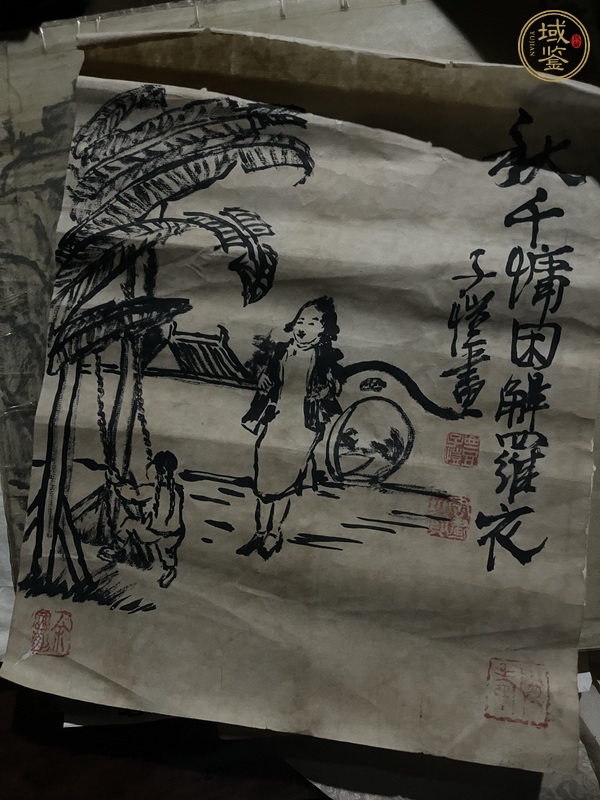 域鉴
YUJIAN
秋千慵困解羅衣
子愷畫